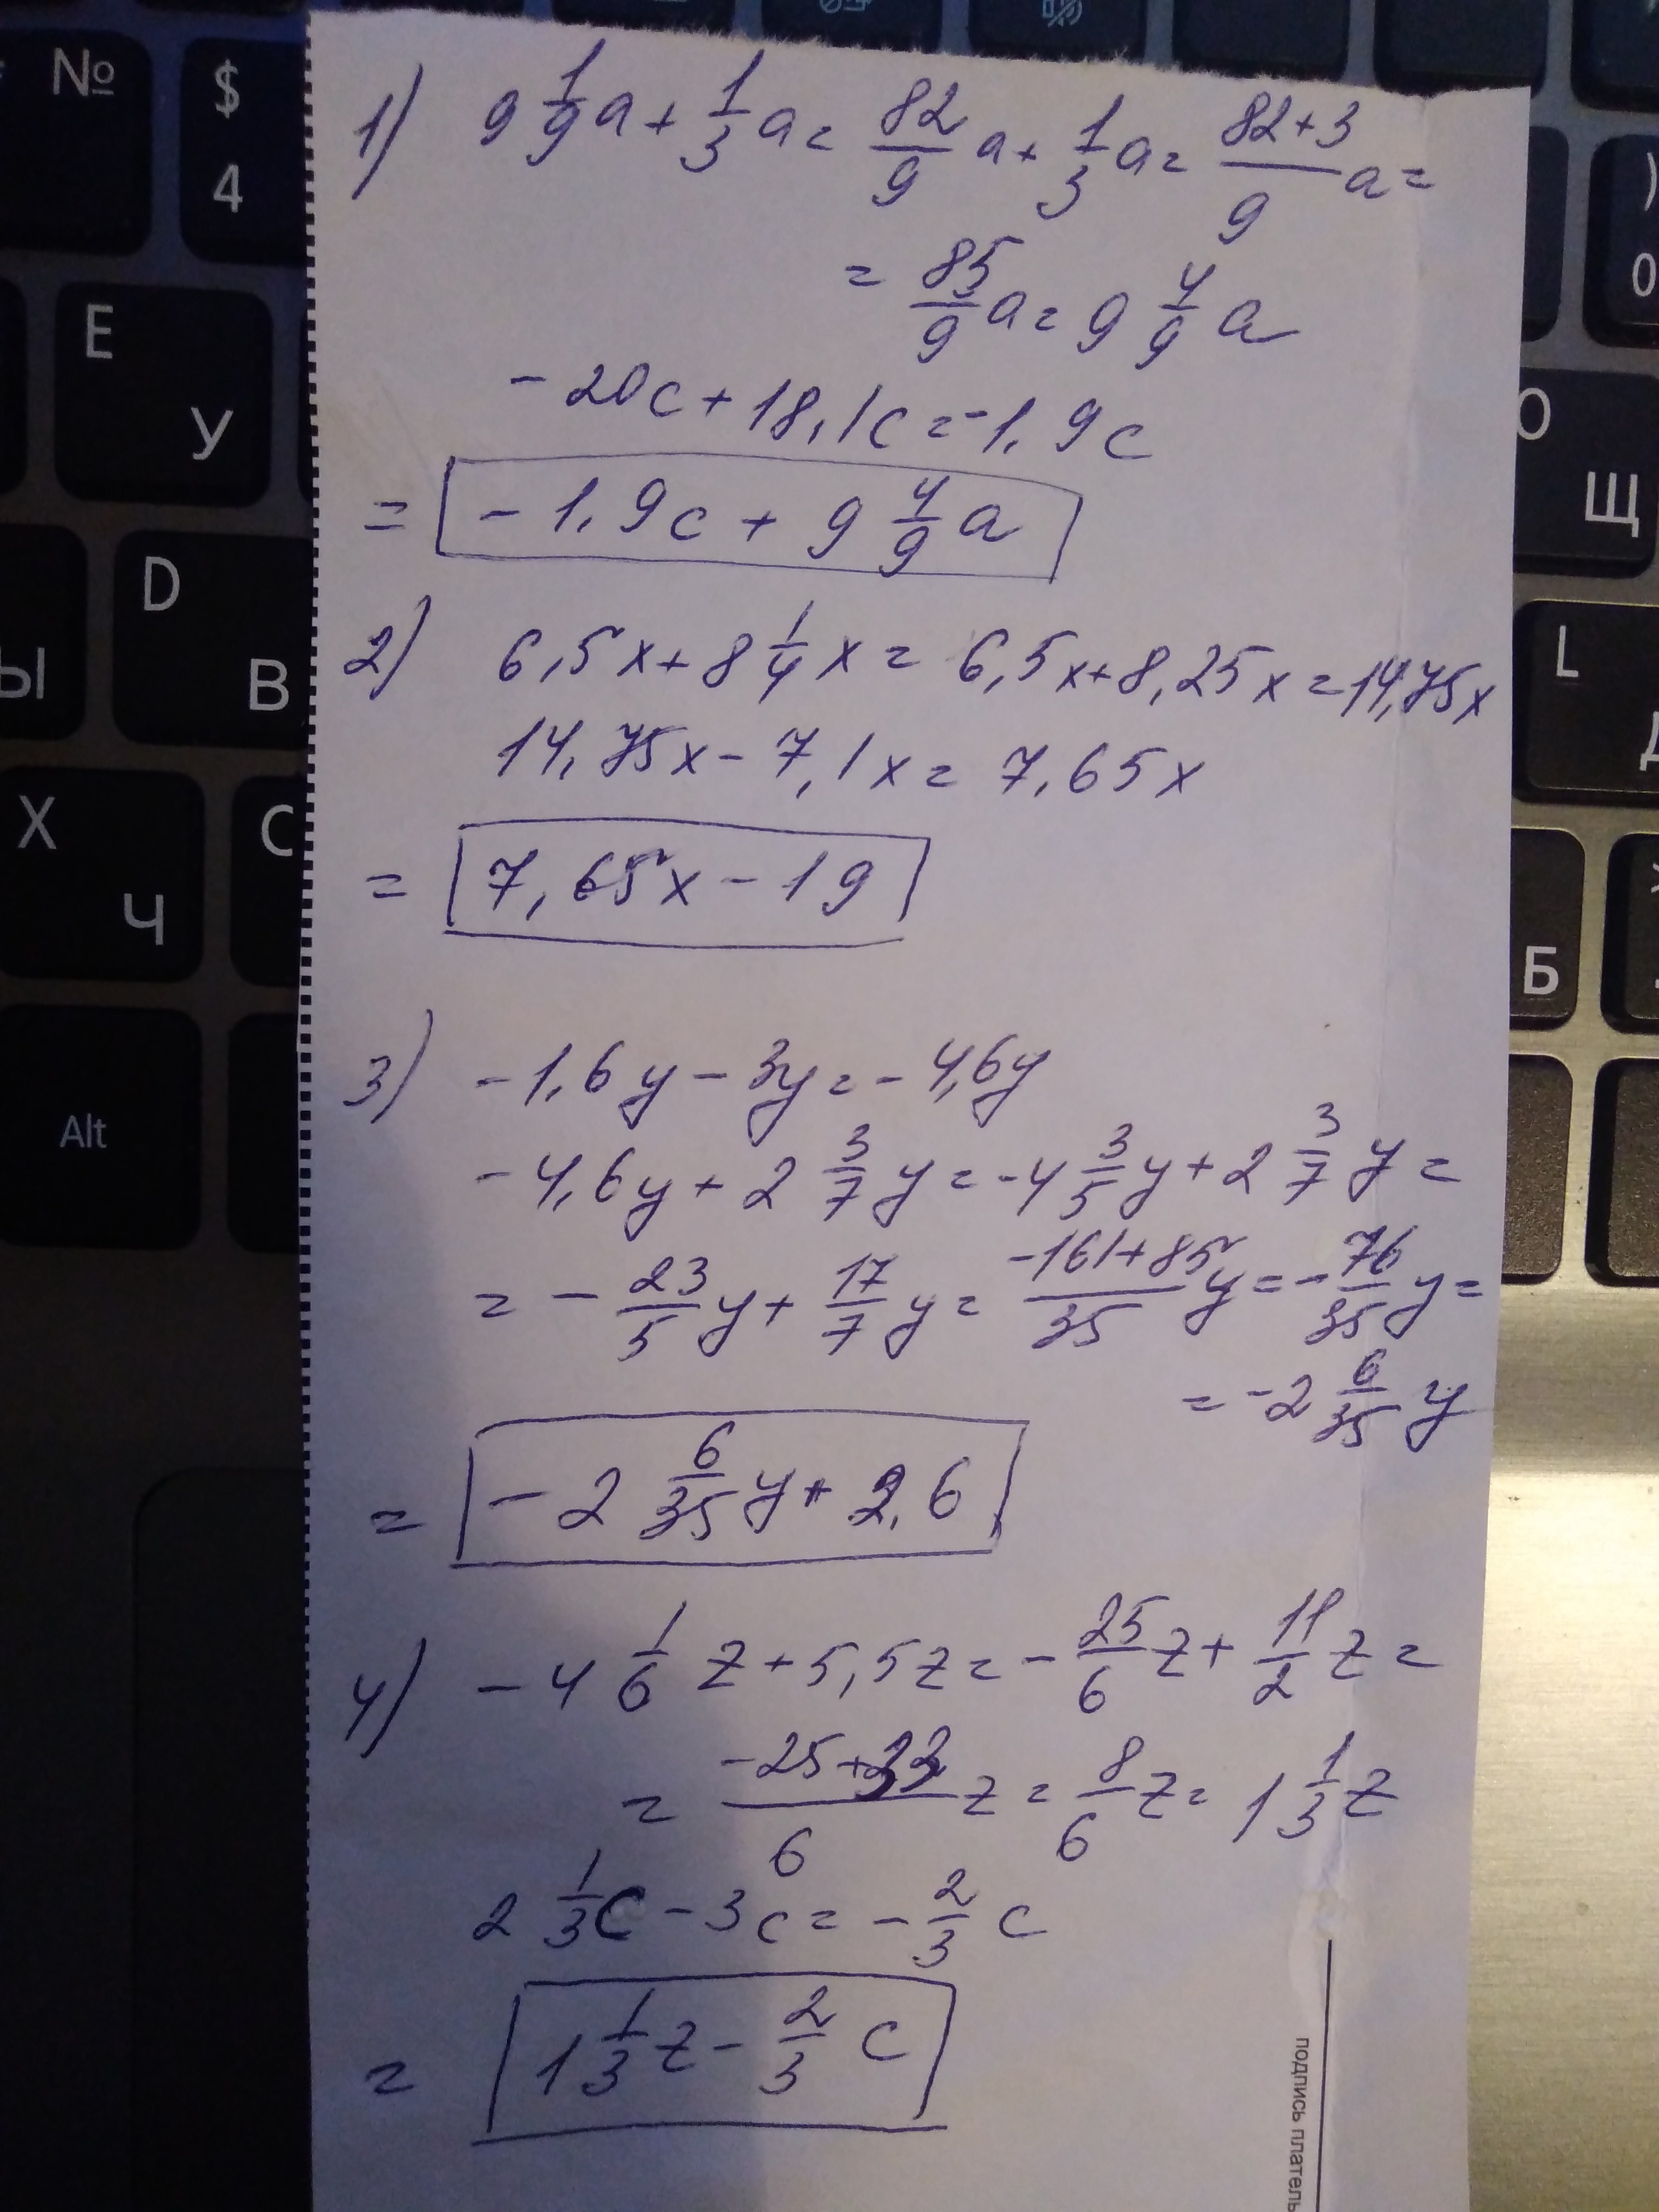 №
$
4
E
У
Ы
D
В
X
Ч
C
Alt
)
0
O
Щ
L
Д
Б
1) 9 1/9 a + 1/3 a = 82/9 a + 1/3 a = (82+3)/9 a =
= 85/9 a = 9 4/9 a
-20c + 18,1c = -1,9c
= -1,9c + 9 4/9 a
2) 6,5x + 8 1/4 x = 6,5x + 8,25x = 14,75x
14,75x - 7,1x = 7,65x
= 7,65x - 19
3) -1,6y - 3y = -4,6y
-4,6y + 2 3/7 y = -4 3/5 y + 2 3/7 y =
= - 23/5 y + 17/7 y = (-161+85)/35 y = - 76/35 y =
= -2 6/35 y
= -2 6/35 y + 2,6
4) -4 1/6 z + 5,5z = - 25/6 z + 11/2 z =
= (-25+33)/6 z = 8/6 z = 1 1/3 z
2 1/3 c - 3c = - 2/3 c
= 1 1/3 z - 2/3 c
подпись платель